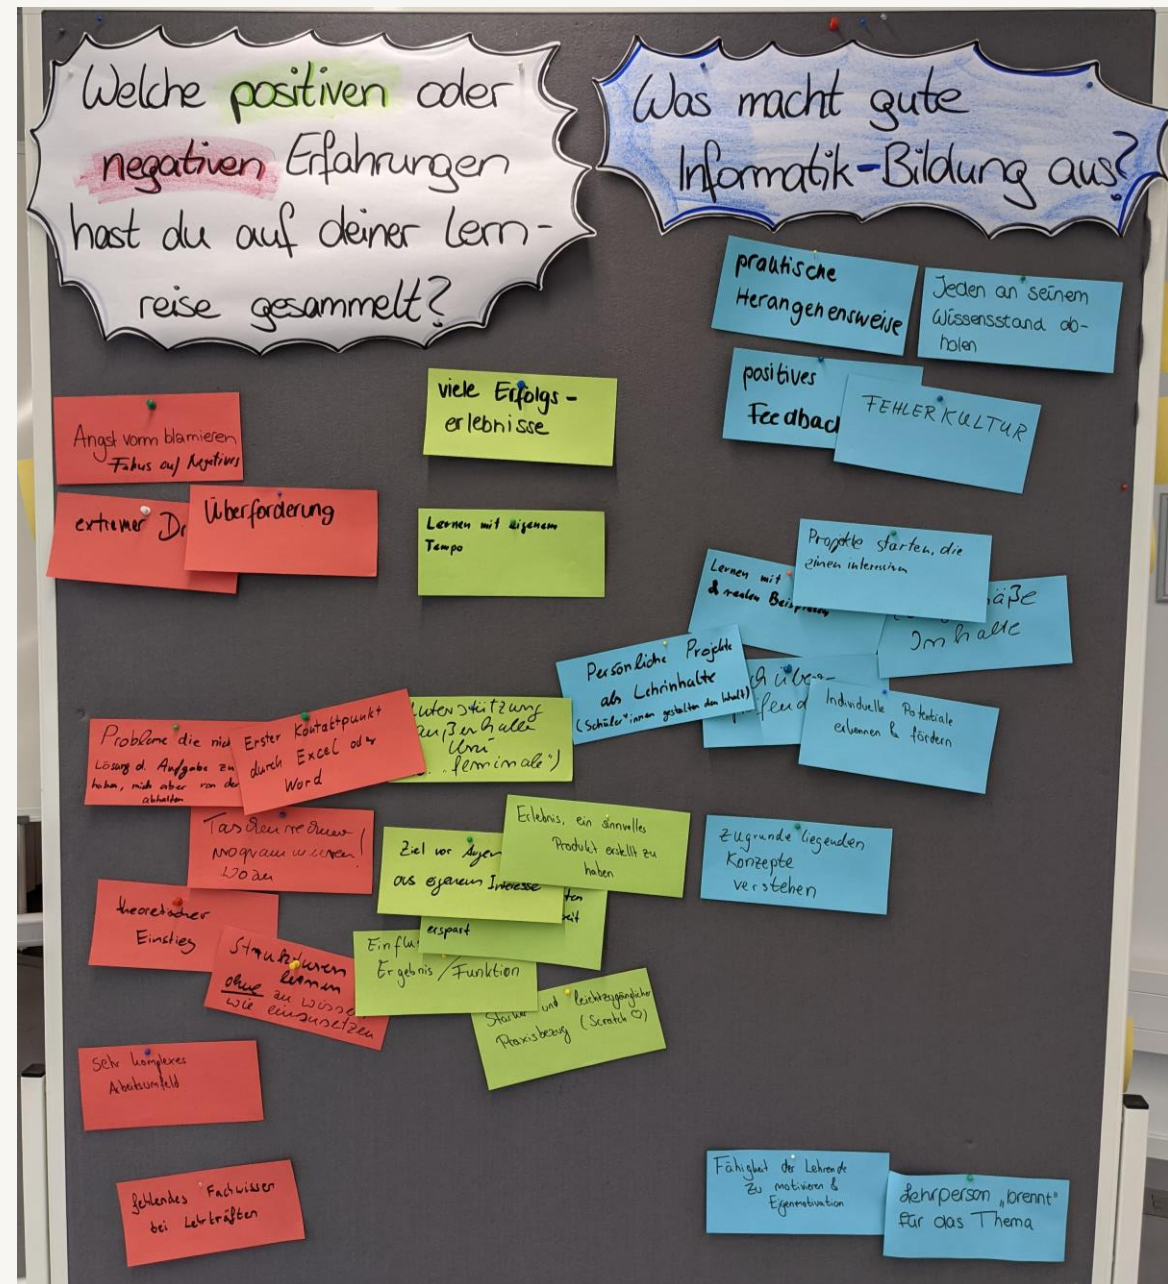 Welche positiven oder
negativen Erfahrungen
hast du auf deiner Lern-
reise gesammelt?
Was macht gute
Informatik-Bildung aus?
Angst vorm blamieren
Fokus auf Negatives
extremer
Überforderung
Probleme die
Lösung d. Aufgabe zu
haben, mich aber von der
abhalten
Erster Kontaktpunkt
durch Excel oder
Word
Taschenrechner
programmieren!
Wozu
theoretischer
Einstieg
Strukturen
lernen
ohne zu
wie einzusetzen
Sehr komplexes
Arbeitsumfeld
fehlendes Fachwissen
bei Lehrkräften
viele Erfolgs-
erlebnisse
Lernen mit eigenem
Tempo
Unterstützung
außerhalb
Uni
Erlebnis, ein sinnvolles
Produkt erstellt zu
haben
Ziel vor Augen
aus eigenem Interesse
erspart
Ergebnis/Funktion
und leichtzugänglicher
Praxisbezug (Scratch ♡)
praktische
Herangehensweise
Jeden an seinem
Wissensstand ab-
holen
positives
Feedback
FEHLERKULTUR
Projekte starten, die
einen interessieren
Lernen mit
& realen Beispielen
Inhalte
Persönliche Projekte
als Lehrinhalte
(Schüler*innen gestalten den Inhalt)
Individuelle Potentiale
erkennen & fördern
Zugrunde liegenden
Konzepte
verstehen
Fähigkeit der Lehrende
zu motivieren &
Eigenmotivation
Lehrperson „brennt“
für das Thema